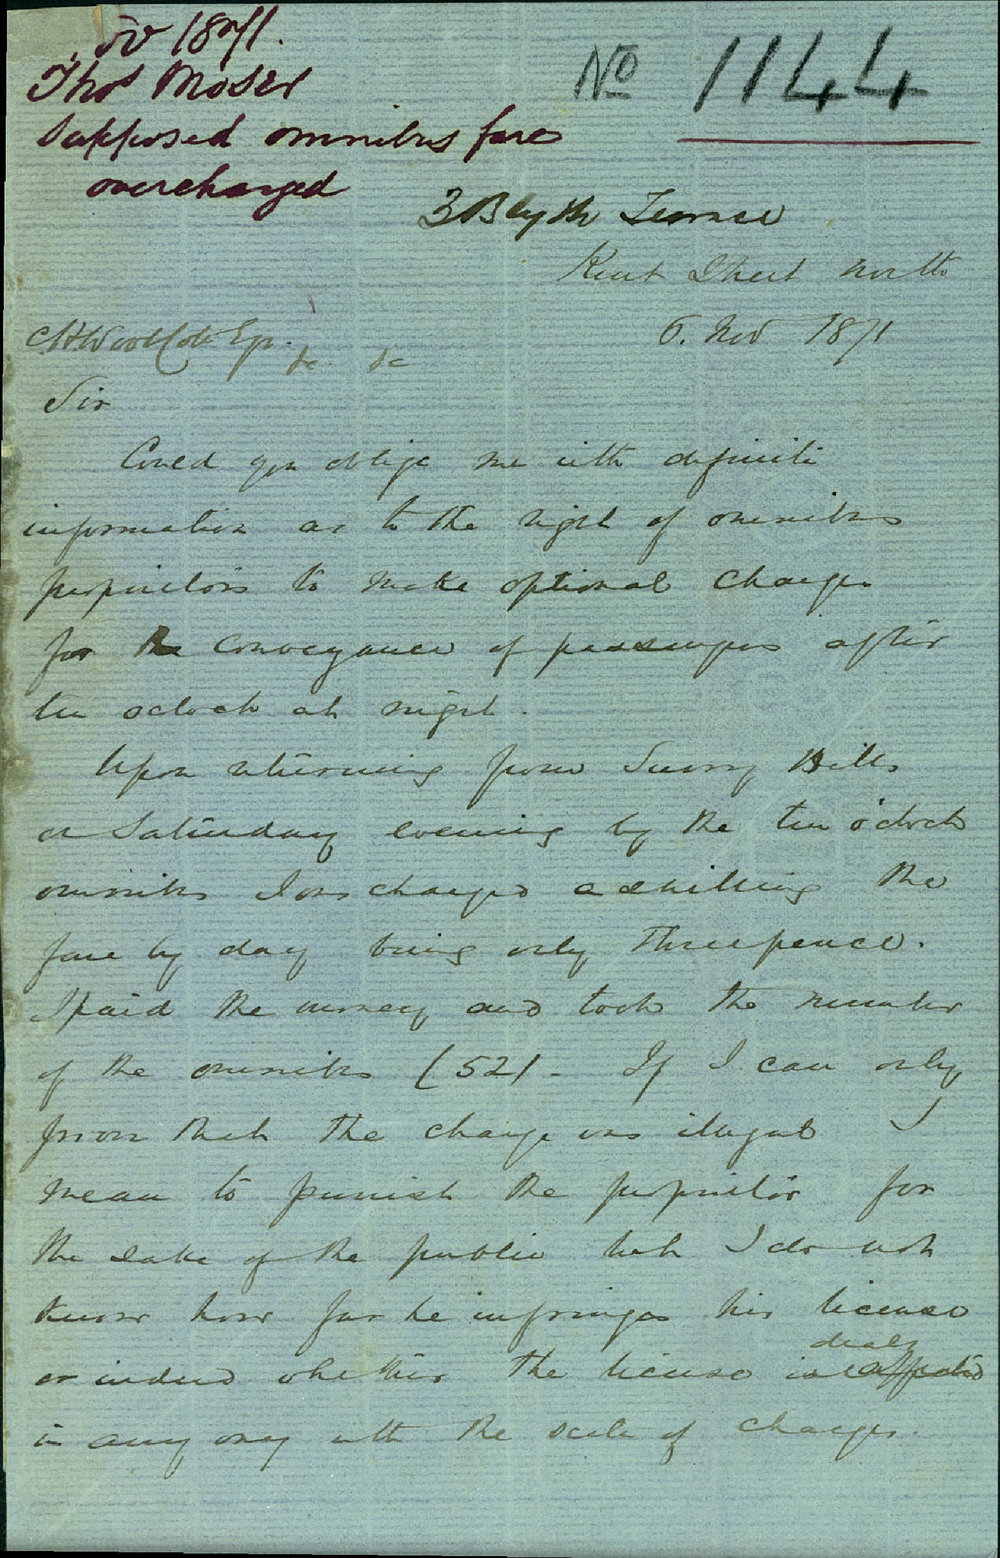 Nov 1871.
Thos Moser
Supposed omnibus fare
overcharged
No 1144
3 Blyth Terrace
Kent Street North
6. Nov 1871
C H Woolcott Esq.
&c &c
Sir
Could you oblige me with definite
information as to the right of omnibus
proprietors to make optional charges
for the conveyance of passengers after
ten oclock at night.
Upon returning from Surry Hills
on Saturday evening by the ten o'clock
omnibus I was charged a shilling the
fare by day being only threepence.
I paid the money and took the number
of the omnibus (52) - If I can only
prove that the charge was illegal I
mean to punish the proprietor for
the sake of the public but I do not
know how far he infringes his license
or indeed whether the license deals
in any way with the scale of charges.